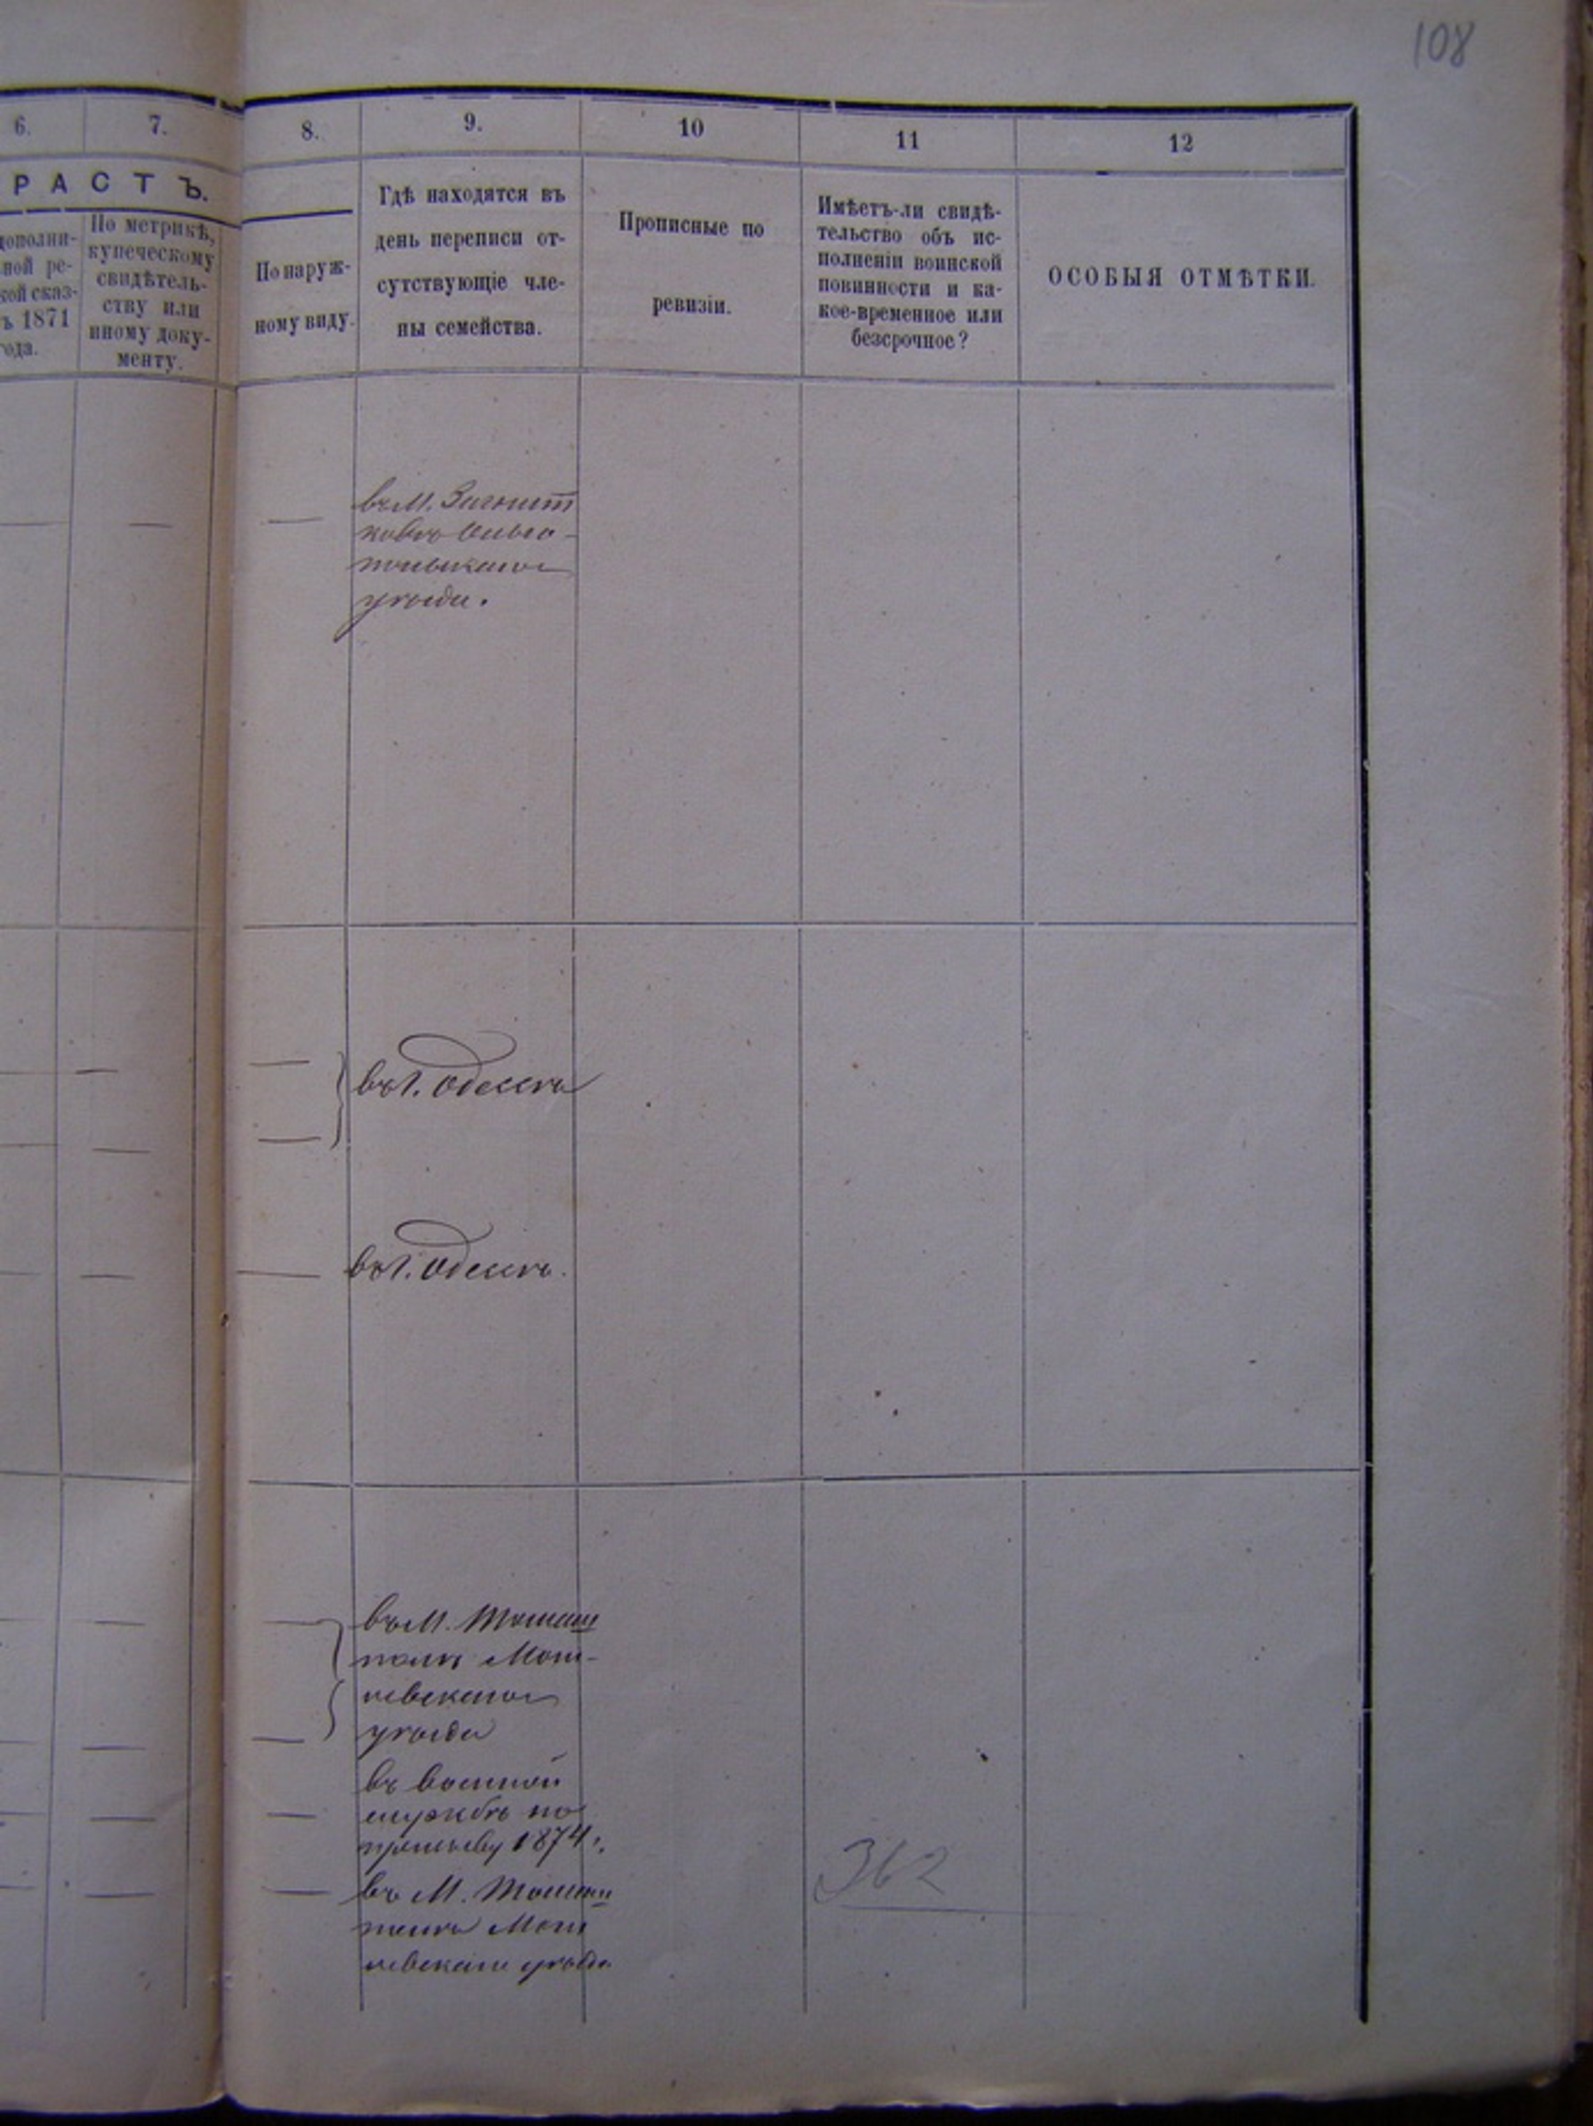 108
6.
7.
8.
9.
10
11
12
РАСТЪ.
дополни-
ной ре-
кой сказ-
ъ 1871
ода.
По метрикѣ,
купеческому
свидѣтель-
ству или
иному доку-
менту.
По наруж-
ному виду.
Гдѣ находятся въ
день переписи от-
сутствующіе чле-
ны семейства.
Прописные по
ревизіи.
Имѣетъ-ли свидѣ-
тельство объ ис-
полненіи воинской
повинности и ка-
кое-временное или
безсрочное?
ОСОБЫЯ ОТМѢТКИ.
въ М. Загнит
ковѣ Ольго-
польскаго
уѣзда.
въ г. Одессѣ
въ г. Одессѣ.
въ М. Томаш
полѣ
уѣзда
въ военной
службѣ по
призыву 1874 г.
въ М. Томаш
полѣ
уѣзда
362